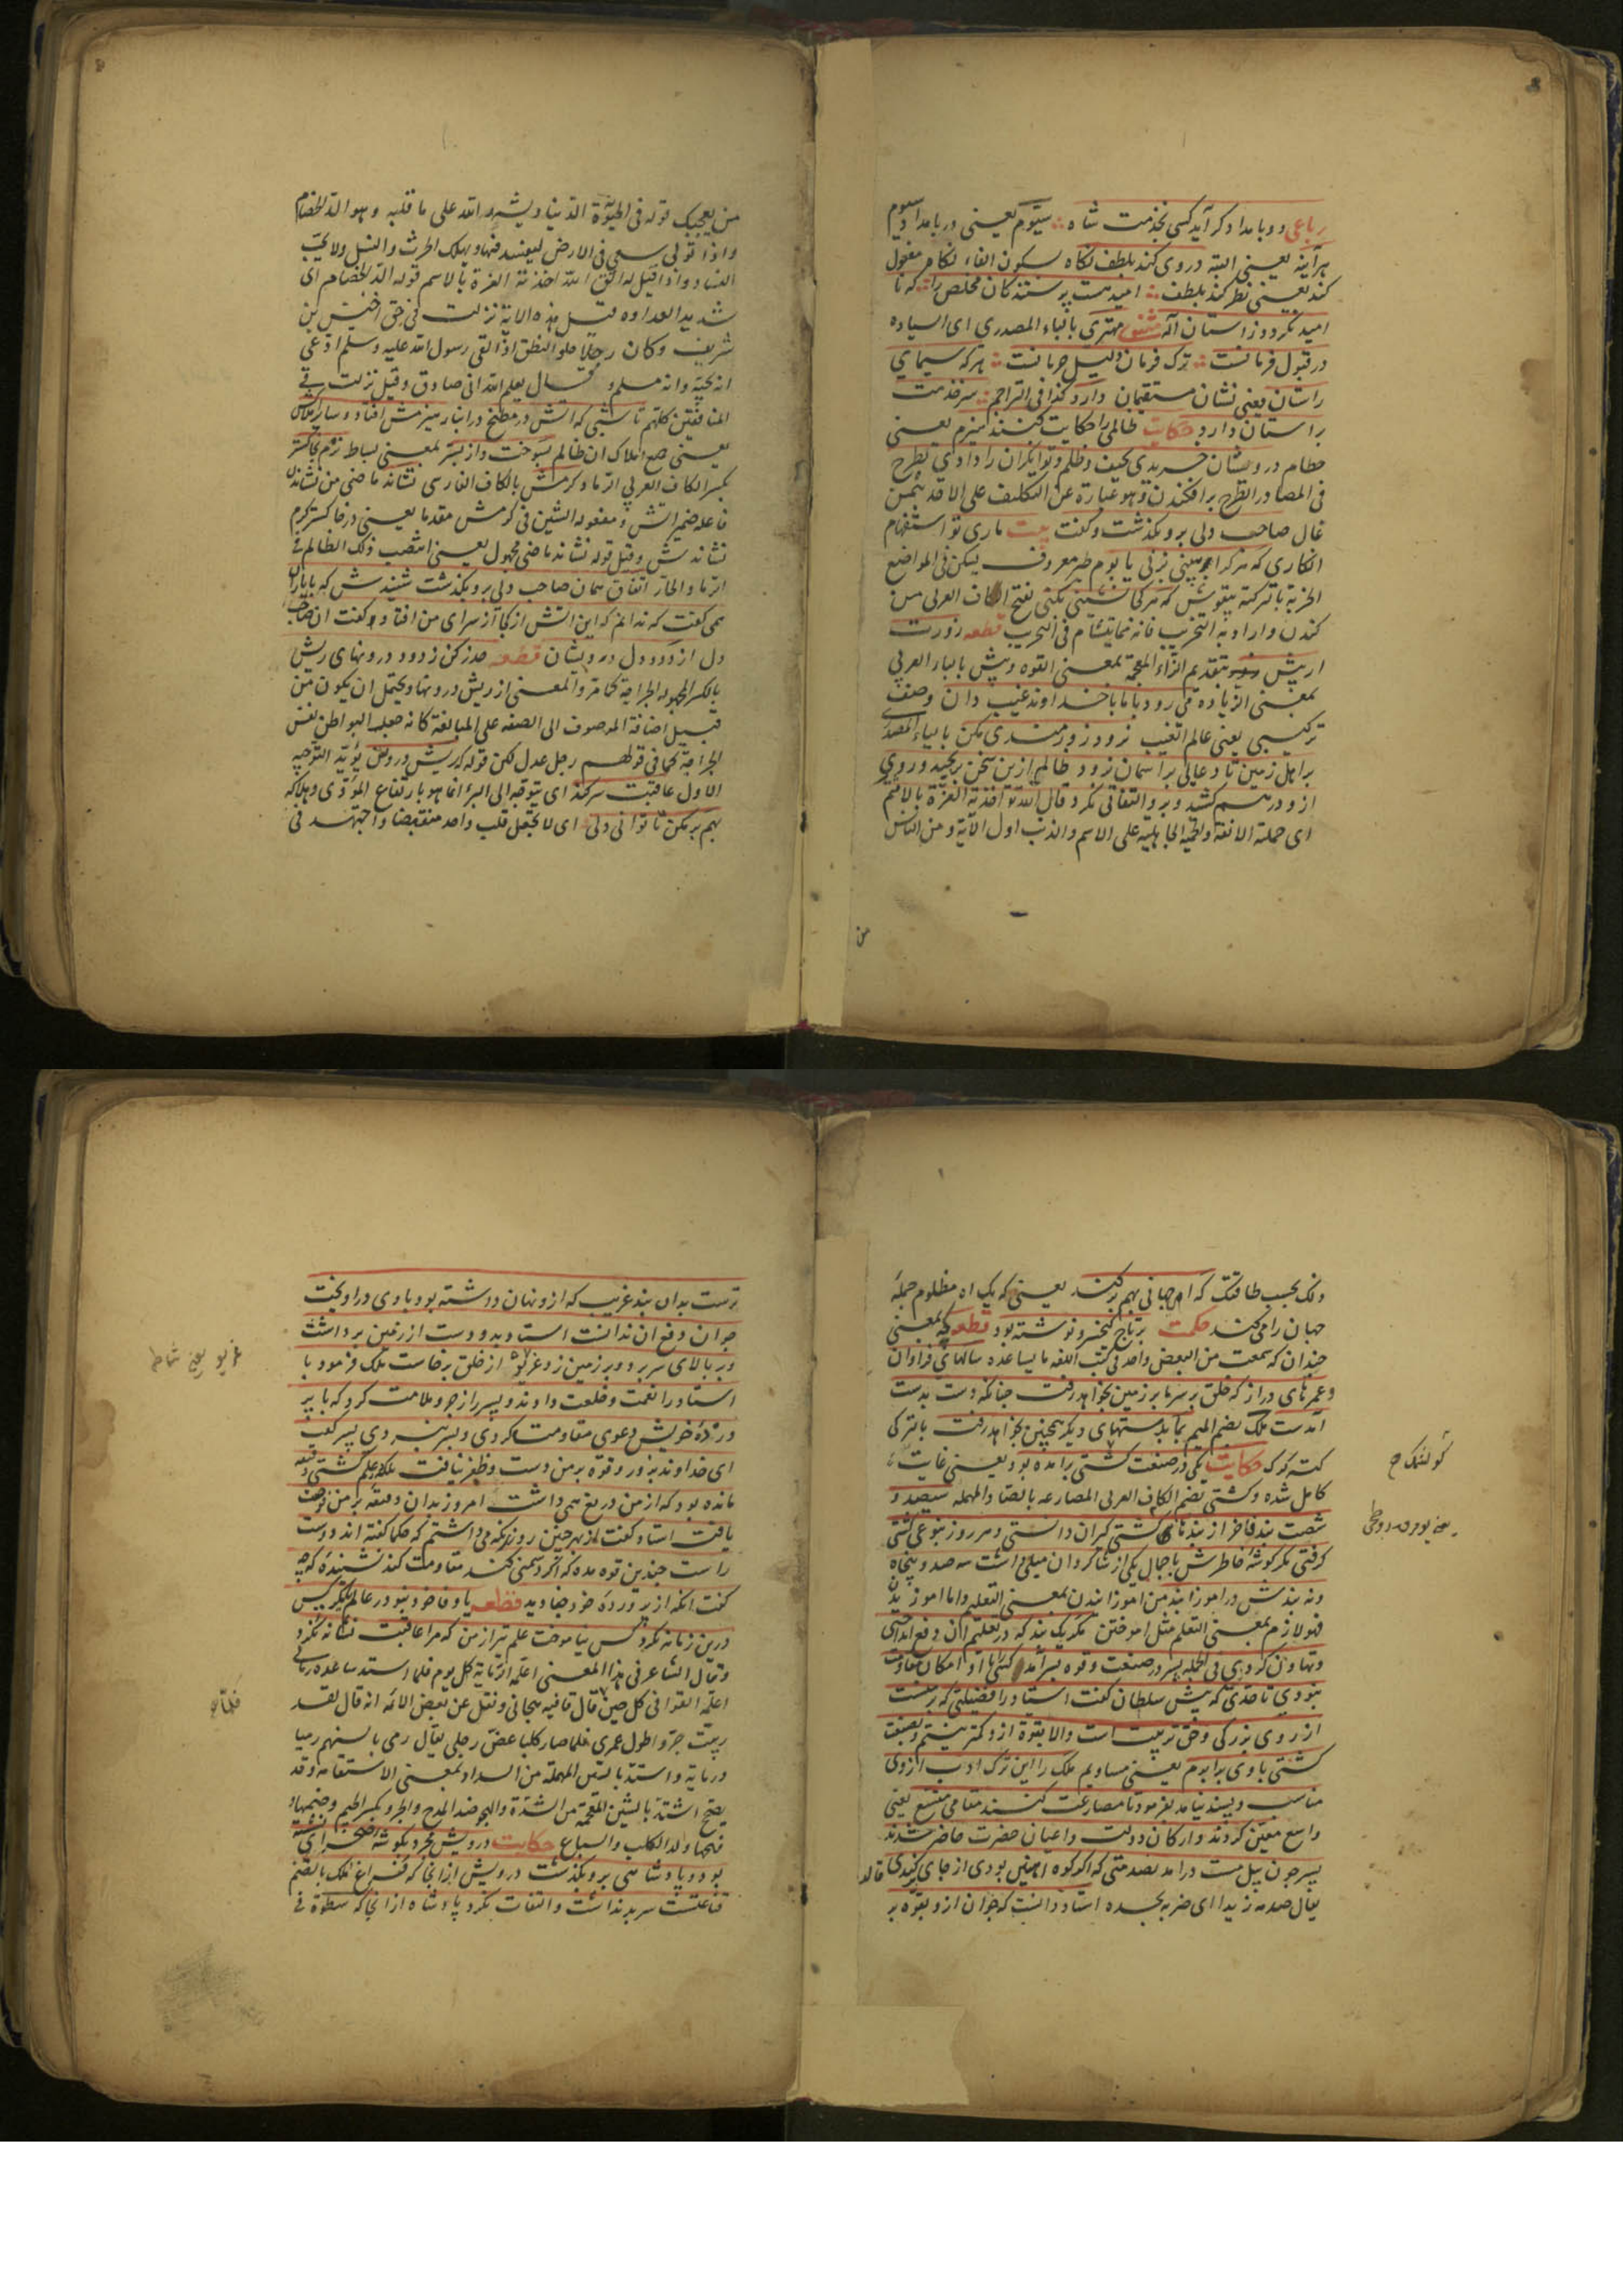 رباعی دو بامداد کر آید کسی بخدمت شاه سیوم یعنی در بامداد سیوم
هر آینه یعنی البته در وی کند بلطف نکاه بسکون الفاء نکاه مفعول
کند یعنی نظر کند بلطف امید هست پرستندکان مخلص را که نا
امید نکردند ز استان اله مثنوی مهتری بالیاء المصدری ای السیاده
در قبول فرمانست ترک فرمان دلیل حرمانست هر که سیمای
راستان یعنی نشان مستقیمان دارد کذا فی التراجم سر خدمت
بر استان دارد حکایت ظالمی را حکایت کنند هیزم یعنی
حطام درویشان خریدی بحیف و ظلم و توانکران را دادی بطرح
فی المصادر الطرح بر افکندن و هو عبارة عن التکلیف علی الاخذ بثمن
غال صاحب دلی برو بکذشت و کفت بیت ماری تو استفهام
انکاری که هر کرا ببینی بزنی یا بوم طیر معروف یسکن فی المواضع
الخربة بالترکیة بیقوش که هر کجا نشینی بکنی بفتح الکاف العربی من
کندن و اراد به التخریب فانه مما یتشأم فی التخریب قطعه زورت
ار پیش بتقدیم الزاء المعجمة بمعنی القوة و پیش بالباء العربی
بمعنی الزیاده می رود با ما با خداوند غیب دان وصف
ترکیبی یعنی عالم الغیب نرود زورمندی مکن بالیاء المصدری
بر اهل زمین تا دعایی بر اسمان نرود ظالم ازین سخن برنجید و روی
ازو درهم کشید و برو التفاتی نکرد قال الله تع اخذته العزة بالاثم
ای حملته الانفة و الحمیة الجاهلیة علی الاثم والذنب اول الآیة و من الناس
من
من یعجبک قوله فی الحیوة الدنیا و یشهد الله علی ما قلبه و هو الد الخصام
و اذا تولی سعی فی الارض لیفسد فیها و یهلک الحرث و النسل و لا یحب
الفساد و اذا قیل له اتق الله اخذته العزة بالاسم قوله الد الخصام ای
شدید العداوه قیل هذه الایة نزلت فی حق اخنس بن
شریف و کان رجلا حلو النطق اذا لقی رسول الله علیه و سلم ادعی
انه یحبه و انه مسلم و قال یعلم الله انی صادق و قیل نزلت فی
المنافقین کلهم تا شبی که اتش در مطبخ در انبار هیزمش افتاد و سایر املاکش
یعنی جمیع املاک ان ظالم بسوخت و از بستر بمعنی بساط نرم بخاکستر
بکسر الکاف العربی الرماد کرمش بالکاف الفارسی نشاند ماضی من نشاندن
فاعله ضمیر اتش و مفعوله الشین فی کرمش مقدما یعنی در خاکستر کرم
نشاندش و قیل قوله نشاند ماضی مجهول یعنی انتصب ذلک الظالم فی
الرماد الحار اتفاق همان صاحب دلی برو بکذشت شنیدش که با یاران
همی کفت که ندانم که این اتش از کجا در سرای من افتاد کفت ان صاحب
دل از دود دل درویشان قطعه حذر کن ز دود درونهای ریش
بالکسر المجهوله الجراحة کما مر و المعنی از ریش درونها و یحتمل ان یکون من
قبیل اضافة الموصوف الی الصفه علی المبالغة کانه جعله البواطن نفس
الجراحة کما فی قولهم رجل عدل لکن قوله که ریش درون یؤید التوجیه
الاول عاقبت سر کند ای یتوجه الی البرء انما هو بارتفاع المؤذی و هلاکه
بهم بر مکن تا توانی دلی ای لا تجعل قلب واحد منقبضا و اجتهد فی
ذلک بحسب طاقتک که اهی جهانی بهم بر کند یعنی که یک اه مظلوم جمله
جهان را می کند حکمت بر تاج کیخسرو نوشته بود قطعه چه یعنی
چندان که سمعت من البعض و احد فی کتب اللغه ما یساعده سالهای فراوان
و عمرهای دراز که خلق بر سر ما بر زمین بخواهد رفت چنانکه دست بدست
آمدست ملک بضم المیم بما بدستهای دیکر همچنین بخواهد رفت بالترکی
کتسه کرک حکایت یکی در صنعت کشتی برامده بود یعنی غایت
کامل شده و کشتی بضم الکاف العربی المصارعه بالصاد المهمله سیصد و
شصت بند فاخر از بندهای کشتی کیران دانستی و هر روز بنوعی کشتی
کرفتی مکر کوشهٔ خاطرش با جمال یکی از شاکردان میلی داشت سه صد و پنجاه
و نه بندش در اموزانید من اموزانیدن بمعنی التعلیم و اما اموزیدن
فهو لازم بمعنی التعلم مثل اموختن مکر یک بند که در تعلیم ان دفع انداختی
و تهاون کردی فی الجمله پسر در صنعت و قوه بسر امد کسی را با او امکان مقاومت
نبودی تا حدی که پیش سلطان کفت استاد را فضیلتی که بر منست
از روی بزرکی و حق تربیت است و الا بقوة ازو کمتر نیستم و بصنعت
کشتی با وی برابرم یعنی مساویم ملک را این ترک ادب از وی
مناسب و پسند نیامد بفرمود تا مصارعت کنند مقامی متسع یعنی
واسع معین کردند و ارکان دولت و اعیان حضرت حاضر شدند
پسر چون پیل مست درامد بصدمتی که اکر کوه اهنین بودی از جای برکندی
یقال صدمه زیدا ای ضربه بجسده استاد دانست که جوان ازو بقوه بر
ترست بدان بند غریب که ازو نهان داشته بود با وی در اویخت
جوان دفع ان ندانست استاد بدو دست از زمین برداشت
و بر بالای سر برد و بر زمین زد غریو از خلق برخاست ملک فرمود با
استاد را نعمت و خلعت دادند و پسر را زجر و ملامت کرد که با پر
وردهٔ خویش دعوی مقاومت کردی و بسر نبردی پسر کفت
ای خداوند بزور و قوة بر من دست و ظفر نیافت بلکه از علم کشتی دقیقه
مانده بود که از من دریغ همی داشت امروز بدان دقیقه بر من فرصت
یافت استاد کفت از بهر چنین روز نکه می داشتم که حکما کفته اند دوست
را ست چندین قوه مده که اکر دشمنی کند مقاومت کند نشنیدهٔ که چه
کفت انکه از پروردهٔ خود جفا دید قطعه یا وفا خود نبود در عالم یا مکر کس
درین زمانه نکرد کس نیاموخت علم تیر از من که مرا عاقبت نشانه نکرد
و قال الشاعر فی هذا المعنی اعلمه الرمایة کل یوم فلما استد ساعده رمانی
اعلمه القوافی کل حین فلما قال قافیه هجانی و نقل عن بعض الائمه انه قال لقد
ربیت جروا طول عمری فلما صار کلبا عض رجلی یقال رمی بالسهم رمیا
و رمایة و استد بالسین المهملة من السداد بمعنی الاستقامه و قد
یصح اشتد بالشین المعجمه من الشدة و الهجو ضد المدح و الجرو بکسر الجیم و ضمها و
فتحها ولد الکلب و السباع حکایت درویشی مجرد بکوشه صحرایی نشسته
بود و پادشاهی برو بکذشت درویش از انجا که فراغ ملک بالضم
قناعتست سر بر نداشت و التفات نکرد پادشاه از انجا که سطوة فی